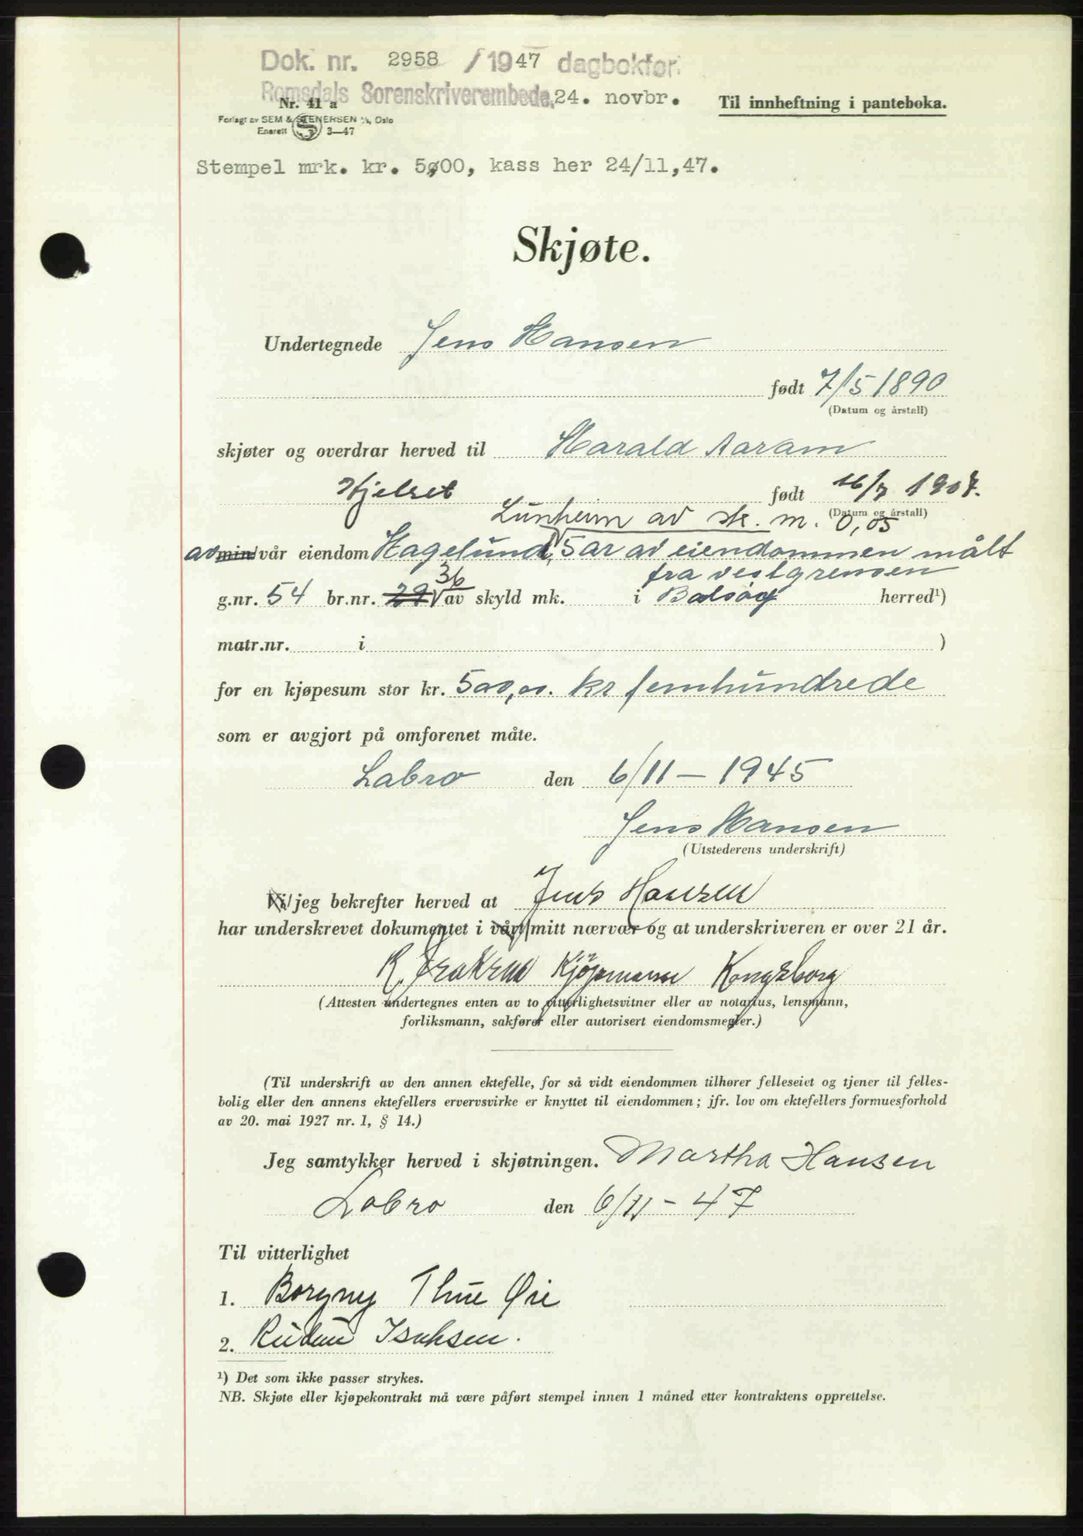 Dok. nr. 2958 / 1947 dagbokfør.
Romsdals Sorenskriverembede, 24. novbr.
Til innheftning i panteboka.
Nr. 41 a
Forlagt av SEM & STENERSEN A/S, Oslo
Enerett S 3—47
Stempel mrk. kr. 5,00, kass her 24/11,47.
Skjøte.
Undertegnede Jens Hansen
født 7/5 1890
(Datum og årstall)
skjøter og overdrar herved til Harald Aaram
Hjelset født 16/7 1907.
(Datum og årstall)
Lunheim av sk. m. 0,05
av min/vår eiendom Hagelund, 5 ar av eiendommen målt
fra vestgrensen
g.nr. 54 br.nr. 29 36 av skyld mk. i Bolsøy herred¹)
matr.nr. i )
for en kjøpesum stor kr. 500,00. kr femhundrede
som er avgjort på omforenet måte.
Labro den 6/11 – 1945
Jens Hansen
(Utstederens underskrift)
Vi/jeg bekrefter herved at Jens Hansen
har underskrevet dokumentet i vårt/mitt nærvær og at underskriveren er over 21 år.
Kjøpmann Kongsberg
(Attesten undertegnes enten av to vitterlighetsvitner eller av notarius, lensmann,
forliksmann, sakfører eller autorisert eiendomsmegler.)
(Til underskrift av den annen ektefelle, for så vidt eiendommen tilhører felleseiet og tjener til felles-
bolig eller den annens ektefellers ervervsvirke er knyttet til eiendommen; jfr. lov om ektefellers formuesforhold
av 20. mai 1927 nr. 1, § 14.)
Jeg samtykker herved i skjøtningen. Martha Hansen
Labro den 6/11 – 47
Til vitterlighet
1. Borgny Thue Øie
2. Isaksen.
¹) Det som ikke passer strykes.
NB. Skjøte eller kjøpekontrakt må være påført stempel innen 1 måned etter kontraktens opprettelse.